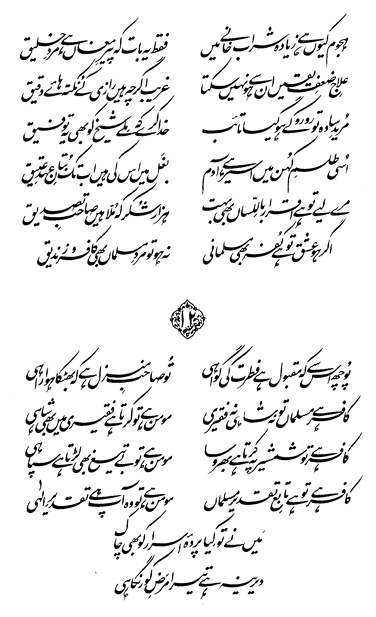 ہجوم کیوں ہے زیادہ شراب خانے میں
فقط یہ بات کہ پیرِ مغاں ہے مردِ خلیق
علاجِ ضعفِ یقیں ان سے ہو نہیں سکتا
غریب اگرچہ ہیں رازی کے نکتہ ہائے دقیق
مریدِ سادہ تو رو رو کے ہو گیا تائب
خدا کرے کہ ملے شیخ کو بھی یہ توفیق
اسی طلسمِ کہن میں اسیر ہے آدم
بغل میں اس کی ہیں اب تک بتانِ عہدِ عتیق
مرے لیے تو ہے اقرار باللساں بھی بہت
ہزار شکر کہ ملا ہیں صاحبِ تصدیق
اگر ہو عشق تو ہے کفر بھی مسلمانی
نہ ہو تو مردِ مسلماں بھی کافر و زندیق
۱۲
پوچھ اس سے کہ مقبول ہے فطرت کی گواہی
تو صاحبِ منزل ہے کہ بھٹکا ہوا راہی
کافر ہے مسلماں تو نہ شاہی نہ فقیری
مومن ہے تو کرتا ہے فقیری میں بھی شاہی
کافر ہے تو شمشیر پہ کرتا ہے بھروسا
مومن ہے تو بے تیغ بھی لڑتا ہے سپاہی
کافر ہے تو ہے تابعِ تقدیر مسلماں
مومن ہے تو وہ آپ ہے تقدیرِ الٰہی
میں نے تو کیا پردۂ اسرار کو بھی چاک
دیرینہ ہے تیرا مرضِ کور نگاہی